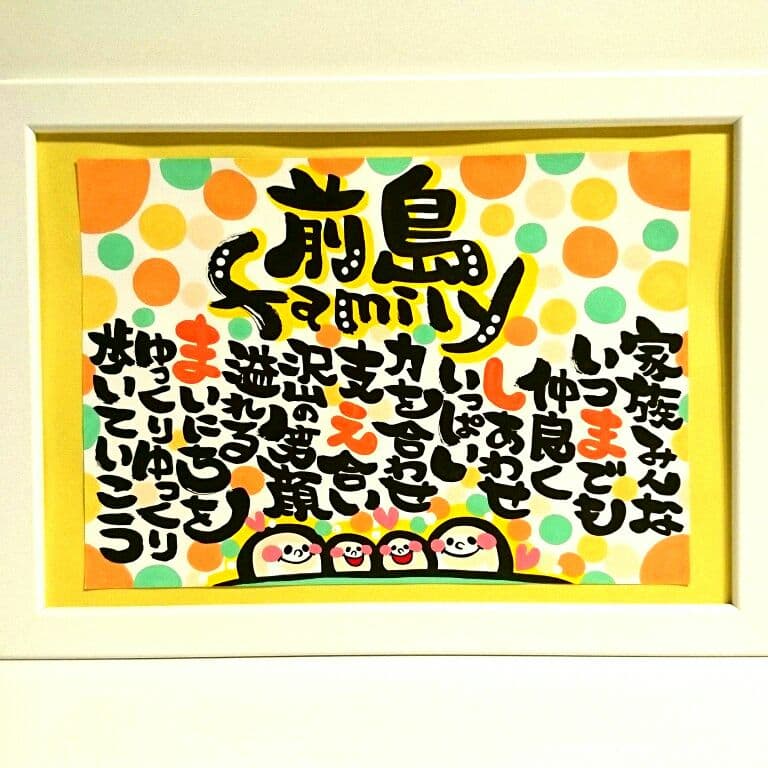 前島
family
家族みんな
いつまでも
仲良く
しあわせ
いっぱい
力を合わせ
支え合い
沢山の笑顔
溢れる
まいにちを
ゆっくりゆっくり
歩いていこう